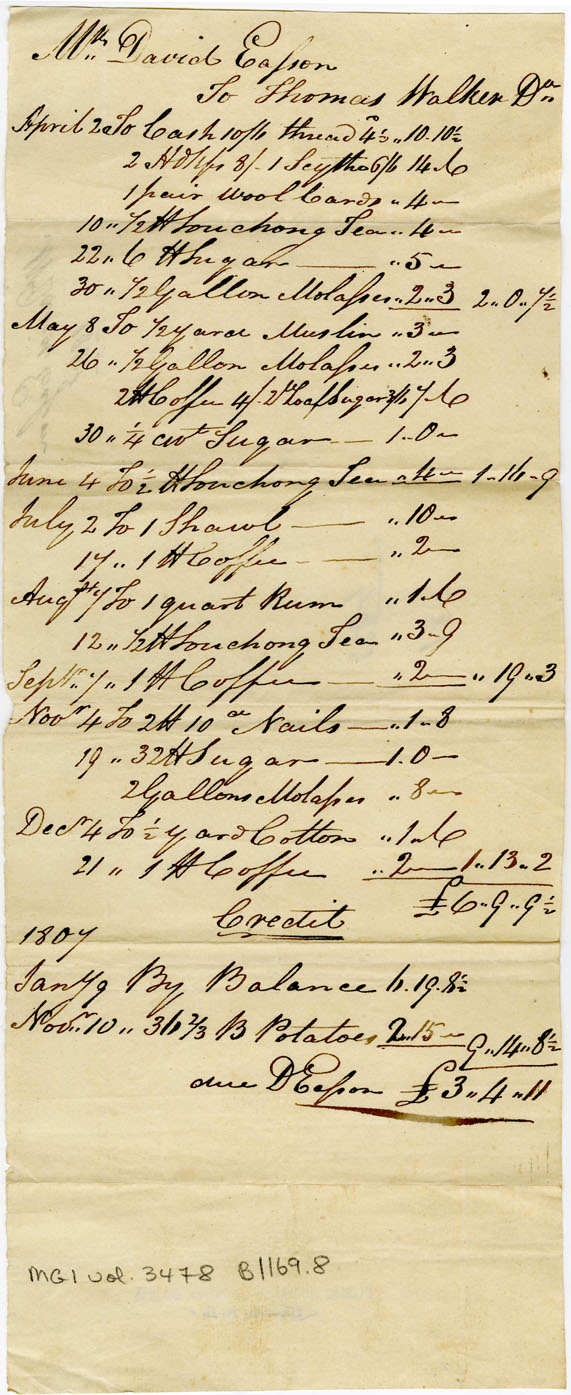 Mr. David Easson
To Thomas Walker Dr
April 2 To Cash 10/6 thread 4½ „ 10. 10½
2 Hdkfs 8/- 1 Scythe 6/6 14 „ 6
1 pair Wool Cards „ 4 „
10 „ ½ lb Souchong Tea „ 4 „
22 „ 6 lb Sugar — „ 5 „
30 „ ½ Gallon Molasses „ 2 „ 3 2 „ 0 „ 7½
May 8 To ½ yard Muslin „ 3 „
26 „ ½ Gallon Molasses „ 2 „ 3
2 lb Coffee 4/- 2 lb Loaf Sugar 3/6 7 „ 6
30 „ ¼ cwt Sugar — 1 „ 0 „
June 4 To ½ lb Souchong Tea „ 4 „ 1 „ 16 „ 9
July 2 To 1 Shawl — „ 10 „
17 „ 1 lb Coffee — „ 2 „
Augst 7 To 1 quart Rum „ 1 „ 6
12 „ ½ lb Souchong Tea „ 3 „ 9
Septr. 7 „ 1 lb Coffee — „ 2 „ „ 19 „ 3
Novr 4 To 2 lb 10 d Nails — „ 1 „ 8
19 „ 32 lb Sugar — 1 „ 0 „
2 Gallons Molasses „ 8 „
Decr 4 To ½ yard Cotton „ 1 „ 6
21 „ 1 lb Coffee „ 2 „ 1 „ 13 „ 2
£6 „ 9 „ 9½
Credit
1807
Jany 9 By Balance 6. 19. 8½
Novr. 10 „ 36 2/3 B Potatoes 2 „ 15 „ 9 „ 14 „ 8½
due D Easson £3 „ 4 „ 11
MG1 vol. 3478 B1169.8